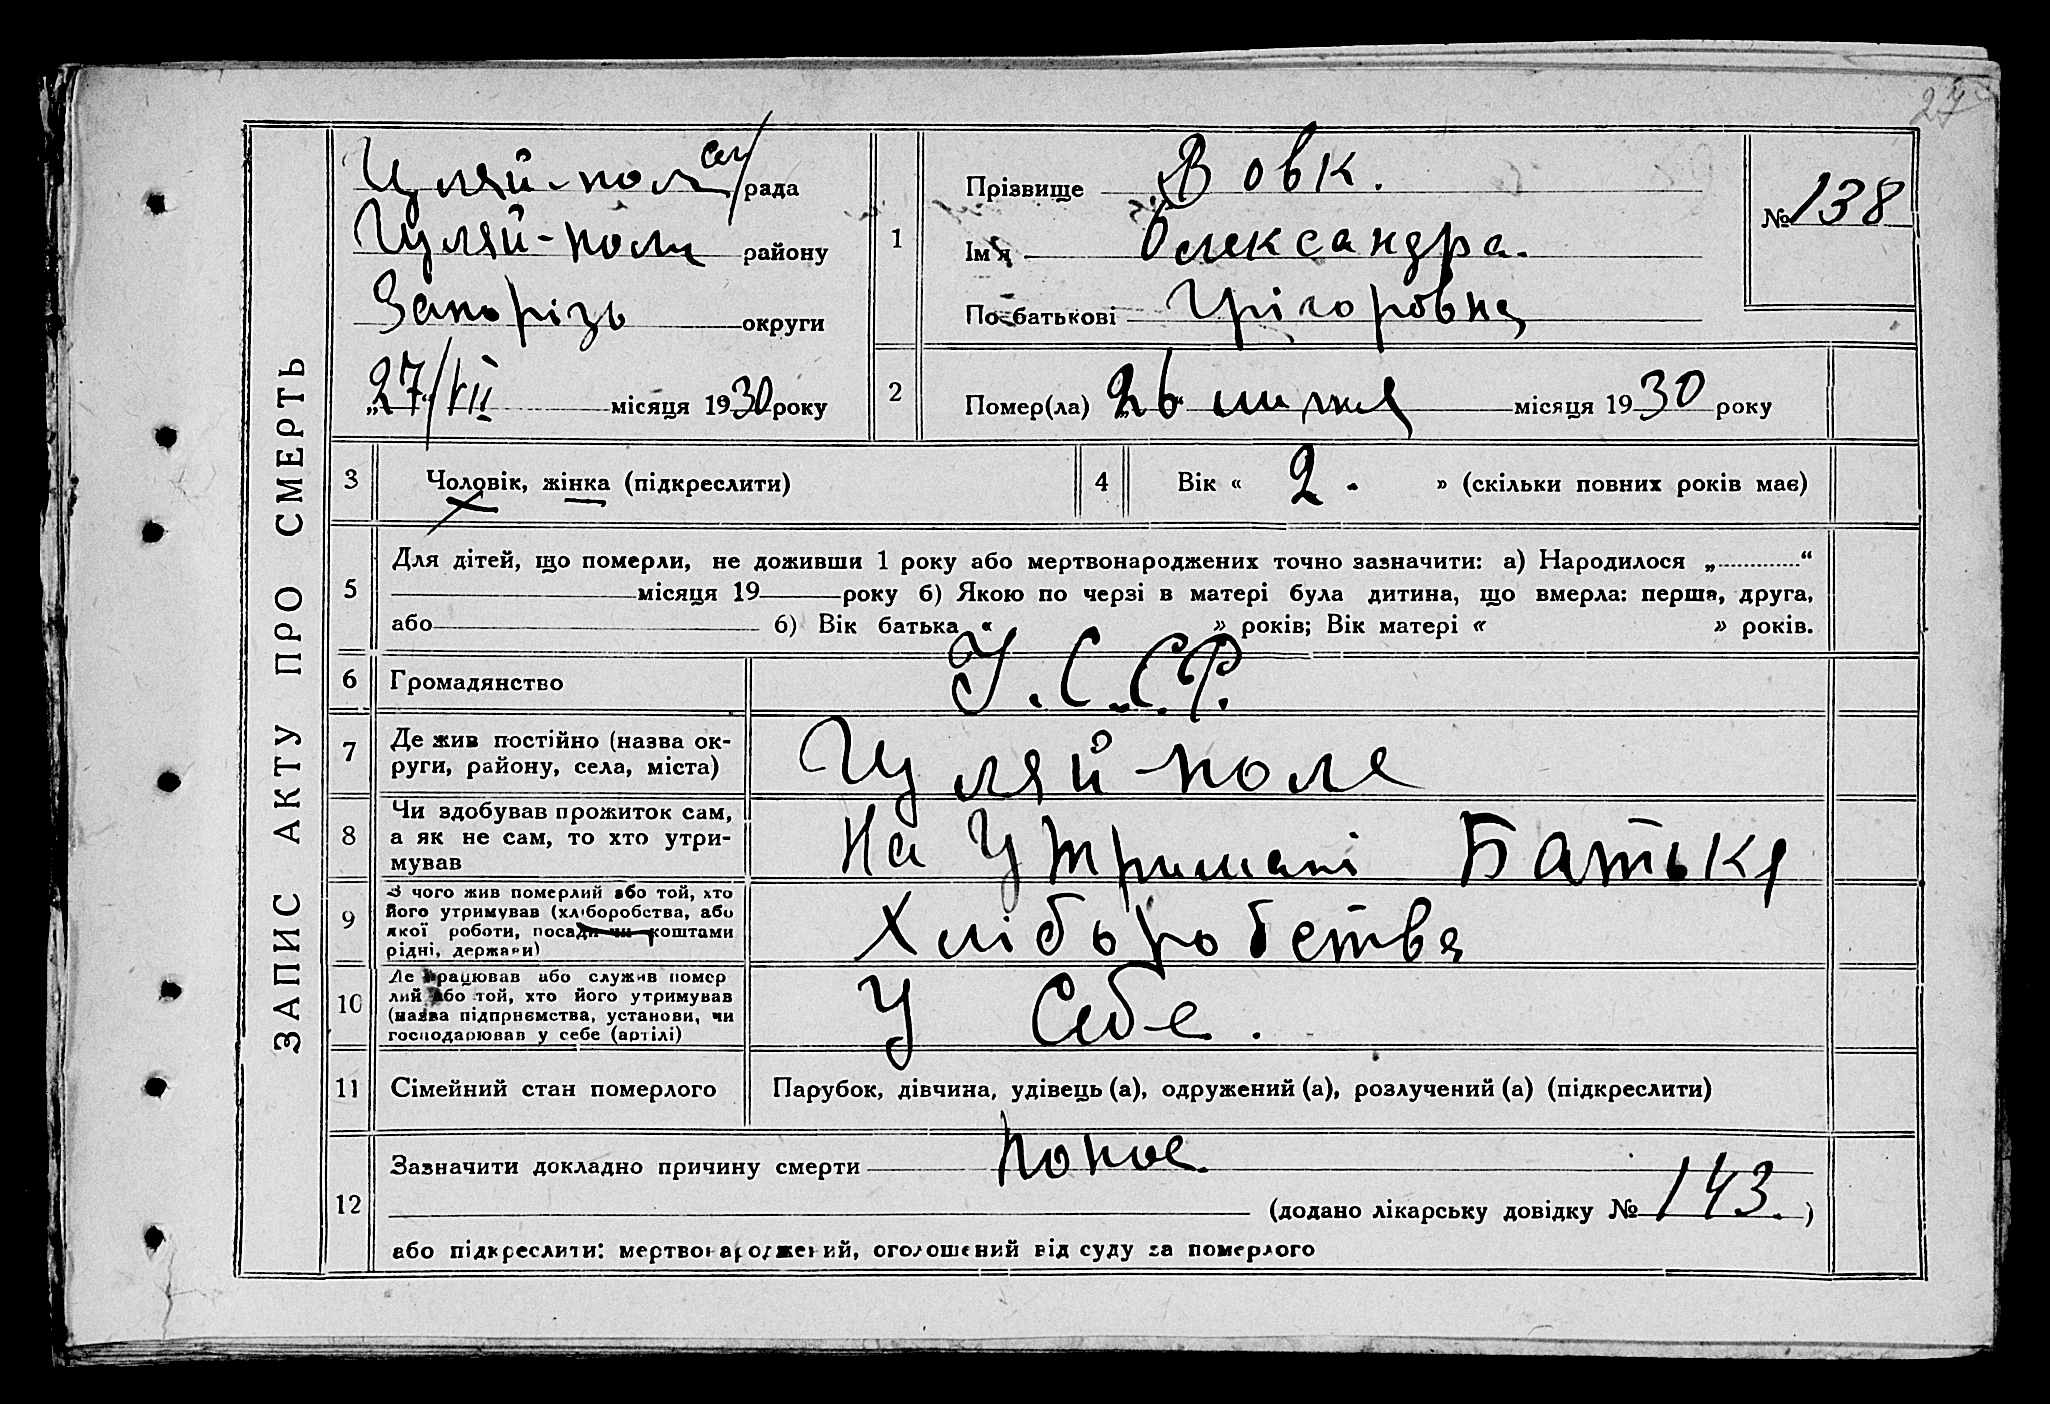 27
ЗАПИС АКТУ ПРО СМЕРТЬ
Гуляй-пол сел/рада
Гуляй-поле району
Запорізь округи
„27“/VII місяця 1930 року
1
Прізвище Вовк.
Ім'я Олександра.
По-батькові Грігоровна
№ 138
2
Помер(ла) „26“ липня місяця 1930 року
3
Чоловік, жінка (підкреслити)
4
Вік « 2. » (скільки повних років має)
5
Для дітей, що померли, не доживши 1 року або мертвонароджених точно зазначити: а) Народилося „ “
місяця 19 року б) Якою по черзі в матері була дитина, що вмерла: перша, друга,
або б) Вік батька « » років; Вік матері « » років.
6
Громадянство
У.С.С.Р.
7
Де жив постійно (назва ок-
руги, району, села, міста)
Гуляй-поле
8
Чи здобував прожиток сам,
а як не сам, то хто утри-
мував
На Утримані Батька
9
З чого жив померлий або той, хто
його утримував (хліборобства, або
якої роботи, посади чи коштами
рідні, держави)
Хліборобства
10
Де працював або служив помер
лий або той, хто його утримував
(назва підприємства, установи, чи
господарював у себе (артілі)
У Себе.
11
Сімейний стан померлого
Парубок, дівчина, удівець (а), одружений (а), розлучений (а) (підкреслити)
12
Зазначити докладно причину смерти Понос.
(додано лікарську довідку № 143.)
або підкреслити: мертвонароджений, оголошений від суду за померлого